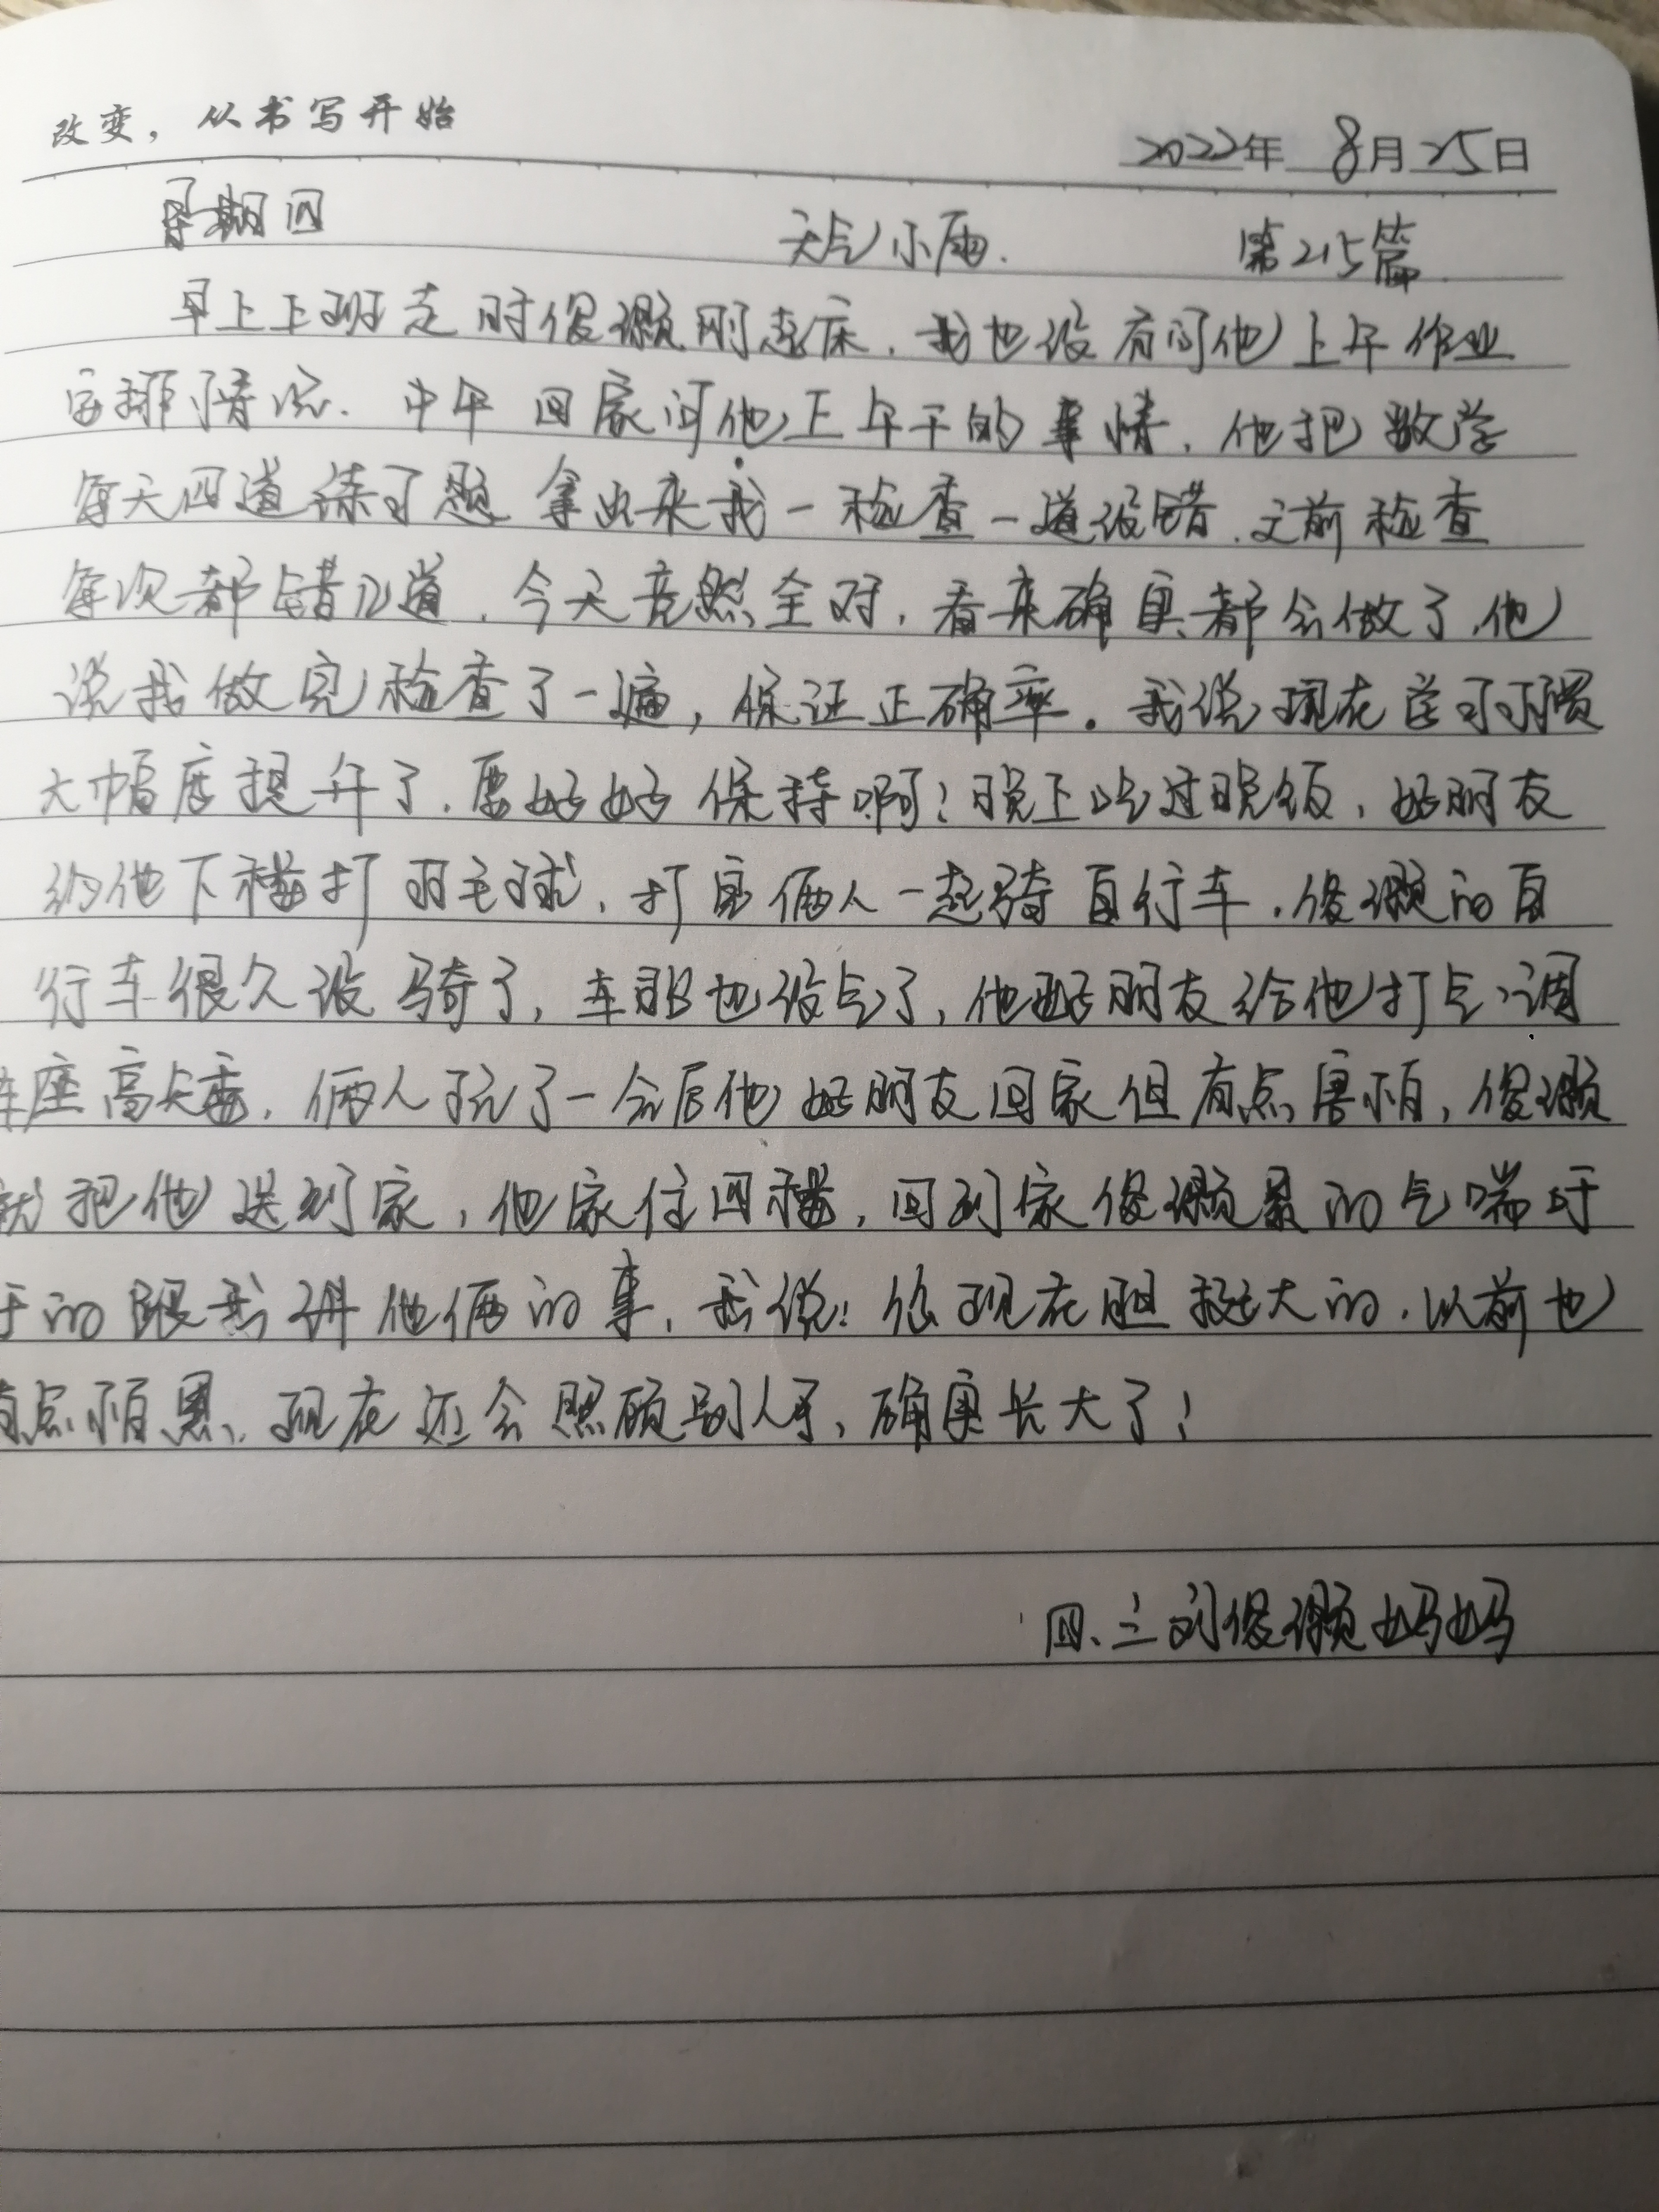 改变，从书写开始
2022年 8月25日
星期四 天气小雨. 第215篇
早上上班走时俊灏刚起床，我也没有问他上午作业
安排情况. 中午回家问他上午干的事情，他把数学
每天四道练习题拿出来我一检查一道没错.之前检查
每次都错几道，今天竟然全对，看来确实都会做了，他
说我做完检查了一遍，保证正确率。我说现在学习习惯
大幅度提升了，要好好保持啊！晚上吃过晚饭，好朋友
约他下楼打羽毛球，打完俩人一起骑自行车，俊灏的自
行车很久没骑了，车胎也没气了，他好朋友给他打气、调
车座高矮，俩人玩了一会后他好朋友回家但有点害怕，俊灏
就把他送到家，他家住四楼，回到家俊灏累的气喘吁
吁的跟我讲他俩的事，我说：你现在胆挺大的，以前也
有点怕黑，现在还会照顾别人了，确实长大了！
四、三刘俊灏妈妈